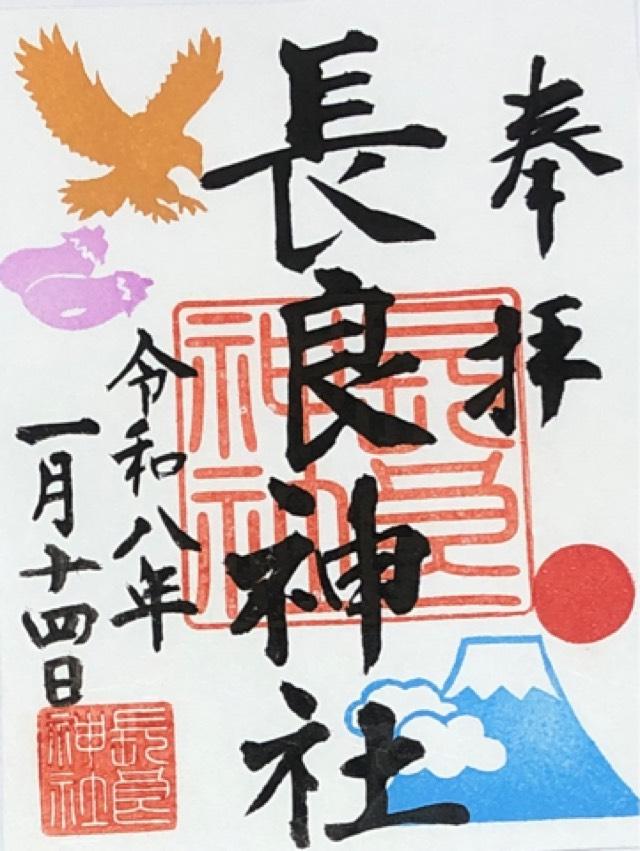 奉拝
長良神社
長良神社
令和八年
一月十四日
長良神社